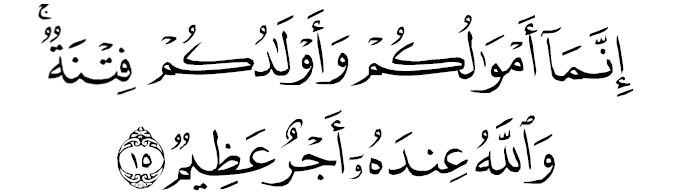 إِنَّمَآ أَمۡوَٰلُكُمۡ وَأَوۡلَٰدُكُمۡ فِتۡنَةٞۚ
وَٱللَّهُ عِندَهُۥٓ أَجۡرٌ عَظِيمٞ ١٥